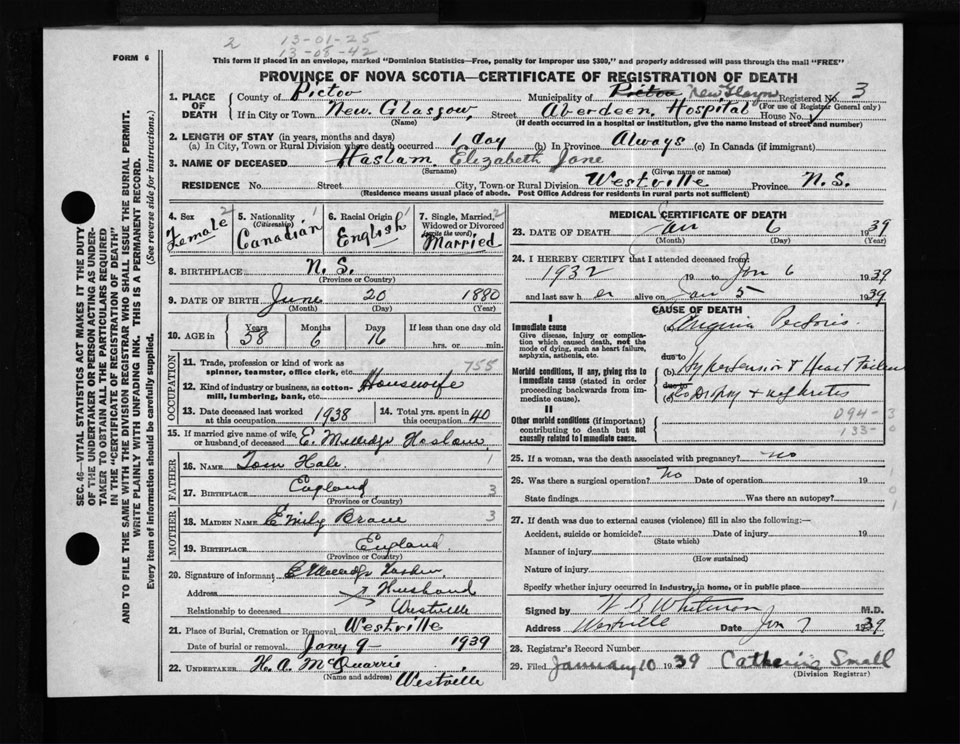 2 13-01-25
13-08-42
FORM 6
This form if placed in an envelope, marked "Dominion Statistics—Free, penalty for improper use $300," and properly addressed will pass through the mail "FREE"
PROVINCE OF NOVA SCOTIA—CERTIFICATE OF REGISTRATION OF DEATH
SEC. 46—VITAL STATISTICS ACT MAKES IT THE DUTY
OF THE UNDERTAKER OR PERSON ACTING AS UNDER-
TAKER TO OBTAIN ALL THE PARTICULARS REQUIRED
IN THE "CERTIFICATE OF REGISTRATION OF DEATH"
AND TO FILE THE SAME WITH THE DIVISION REGISTRAR WHO SHALL ISSUE THE BURIAL PERMIT.
WRITE PLAINLY WITH UNFADING INK. THIS IS A PERMANENT RECORD.
Every item of information should be carefully supplied. (See reverse side for instructions.)
1. PLACE OF DEATH County of Pictou Municipality of Pictou New Glasgow Registered No. 3
(For use of Registrar General only)
If in City or Town New Glasgow, Street Aberdeen Hospital House No.
(Name) (If death occurred in a hospital or institution, give the name instead of street and number)
2. LENGTH OF STAY (in years, months and days)
(a) In City, Town or Rural Division where death occurred 1 day (b) In Province Always (c) In Canada (if immigrant)
3. NAME OF DECEASED Haslam, Elizabeth Jane
(Surname) (Given name or names)
RESIDENCE No. Street City, Town or Rural Division Westville Province N.S.
(Residence means usual place of abode. Post Office Address for residents in rural parts not sufficient)
4. Sex 2 Female
5. Nationality (Citizenship) 1 Canadian
6. Racial Origin 1 English
7. Single, Married, Widowed or Divorced (write the word) 2 Married
8. BIRTHPLACE N.S.
(Province or Country)
9. DATE OF BIRTH June 20 1880
(Month) (Day) (Year)
10. AGE in Years 58 Months 6 Days 16 If less than one day old
hrs. or min.
OCCUPATION
11. Trade, profession or kind of work as spinner, teamster, office clerk, etc. 755
12. Kind of industry or business, as cotton-mill, lumbering, bank, etc. Housewife
13. Date deceased last worked at this occupation 1938 14. Total yrs. spent in this occupation 40
15. If married give name of wife or husband of deceased E. Milledge Haslam
FATHER
16. NAME Tom Hale 1
17. BIRTHPLACE England 3
(Province or Country)
MOTHER
18. MAIDEN NAME Emily 3
19. BIRTHPLACE England
(Province or Country)
20. Signature of informant E Milledge Haslam
Address
Relationship to deceased Husband
Westville
21. Place of Burial, Cremation or Removal Westville
Date of burial or removal Jany 9- 1939
22. UNDERTAKER H. A. McQuarrie
(Name and address) Westville
MEDICAL CERTIFICATE OF DEATH
23. DATE OF DEATH Jan 6 1939
(Month) (Day) (Year)
24. I HEREBY CERTIFY that I attended deceased from
1932 19 to Jan 6 1939
and last saw her alive on Jan 5 1939
CAUSE OF DEATH
I
Immediate cause
Give disease, injury or complication which caused death, not the mode of dying, such as heart failure, asphyxia, asthenia, etc.
(a) Angina Pectoris
due to
Morbid conditions, if any, giving rise to immediate cause (stated in order proceeding backwards from immediate cause).
(b) Hypertension & Heart Failure
due to
(c) Dropsy & Nephritis
II
Other morbid conditions (if important) contributing to death but not causally related to immediate cause.
094-3
133-0
25. If a woman, was the death associated with pregnancy? no
26. Was there a surgical operation? No Date of operation 19
State findings Was there an autopsy?
27. If death was due to external causes (violence) fill in also the following:—
Accident, suicide or homicide? Date of injury 19
(State which)
Manner of injury
(How sustained)
Nature of injury
Specify whether injury occurred in industry, in home, or in public place
Signed by M.D.
Address Westville Date Jan 7 1939
28. Registrar's Record Number
29. Filed January 10 1939 Catherine Small
(Division Registrar)